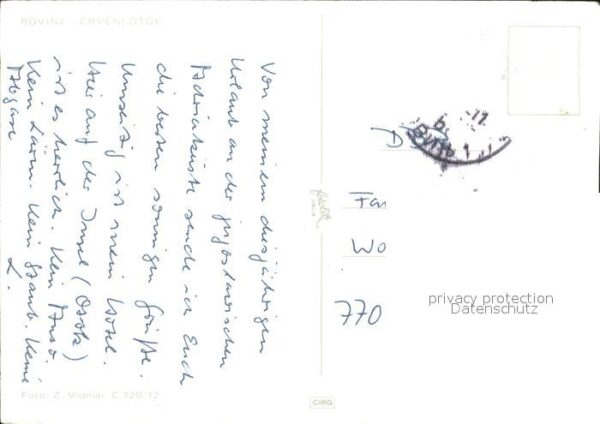 ROVINJ - CRVENI OTOK
Von meinem diesjährigen
Urlaub an der jugoslawischen
Adriaküste sende ich Euch
die besten sonnigen Grüße.
Umseitig ist mein Hotel.
Hier auf der Insel (Otok)
ist es herrlich. Kein Auto.
Kein Lärm. Kein Staub. Keine
Abgase
Foto: Z. Vidmar C 720/12
CIRG
D
Fa
Wo
770
privacy protection
Datenschutz